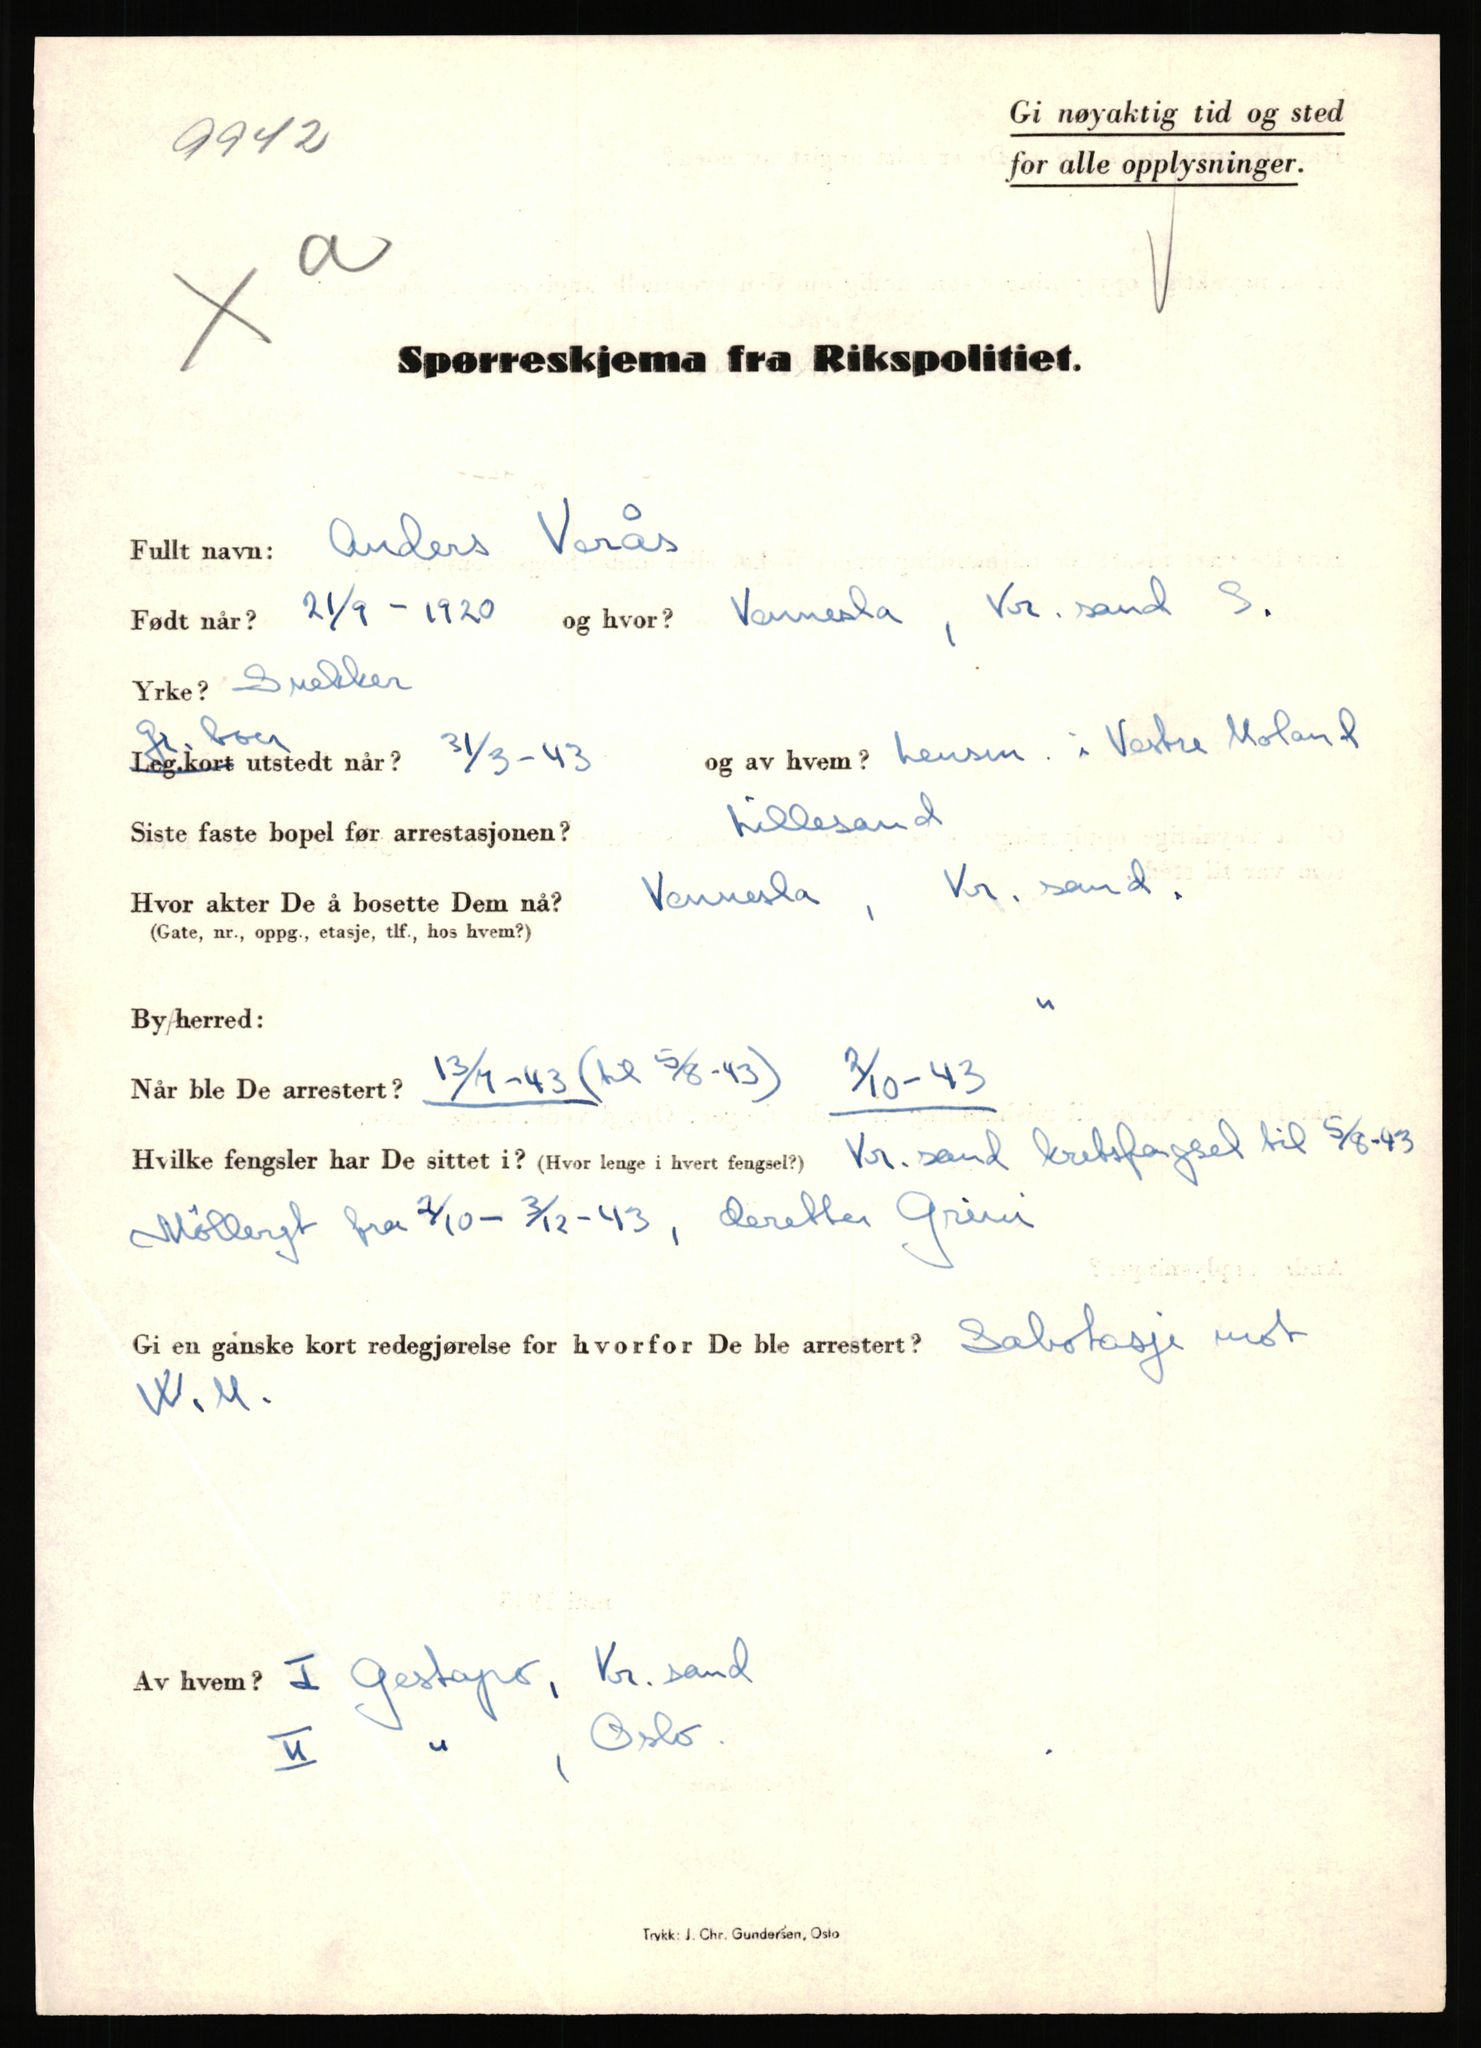 9942
Gi nøyaktig tid og sted
for alle opplysninger.
X a
Spørreskjema fra Rikspolitiet.
Fullt navn: Anders Verås
Født når? 21/9 - 1920 og hvor? Vennesla, Kr. sand S.
Yrke? Snekker
gr. boer
Leg.kort utstedt når? 31/3-43 og av hvem? Lensm. i Vestre Moland
Siste faste bopel før arrestasjonen? Lillesand
Hvor akter De å bosette Dem nå? Vennesla, Kr. sand.
(Gate, nr., oppg., etasje, tlf., hos hvem?)
By/herred: "
Når ble De arrestert? 13/7-43 (til 5/8-43) 2/10-43
Hvilke fengsler har De sittet i? (Hvor lenge i hvert fengsel?) Kr. sand kretsfengsel til 5/8-43
Møllergt fra 2/10 - 3/12-43, deretter Grini
Gi en ganske kort redegjørelse for hvorfor De ble arrestert? Sabotasje mot
W.M.
Av hvem? I Gestapo, Kr. sand
II " , Oslo.
Trykk: J. Chr. Gundersen, Oslo